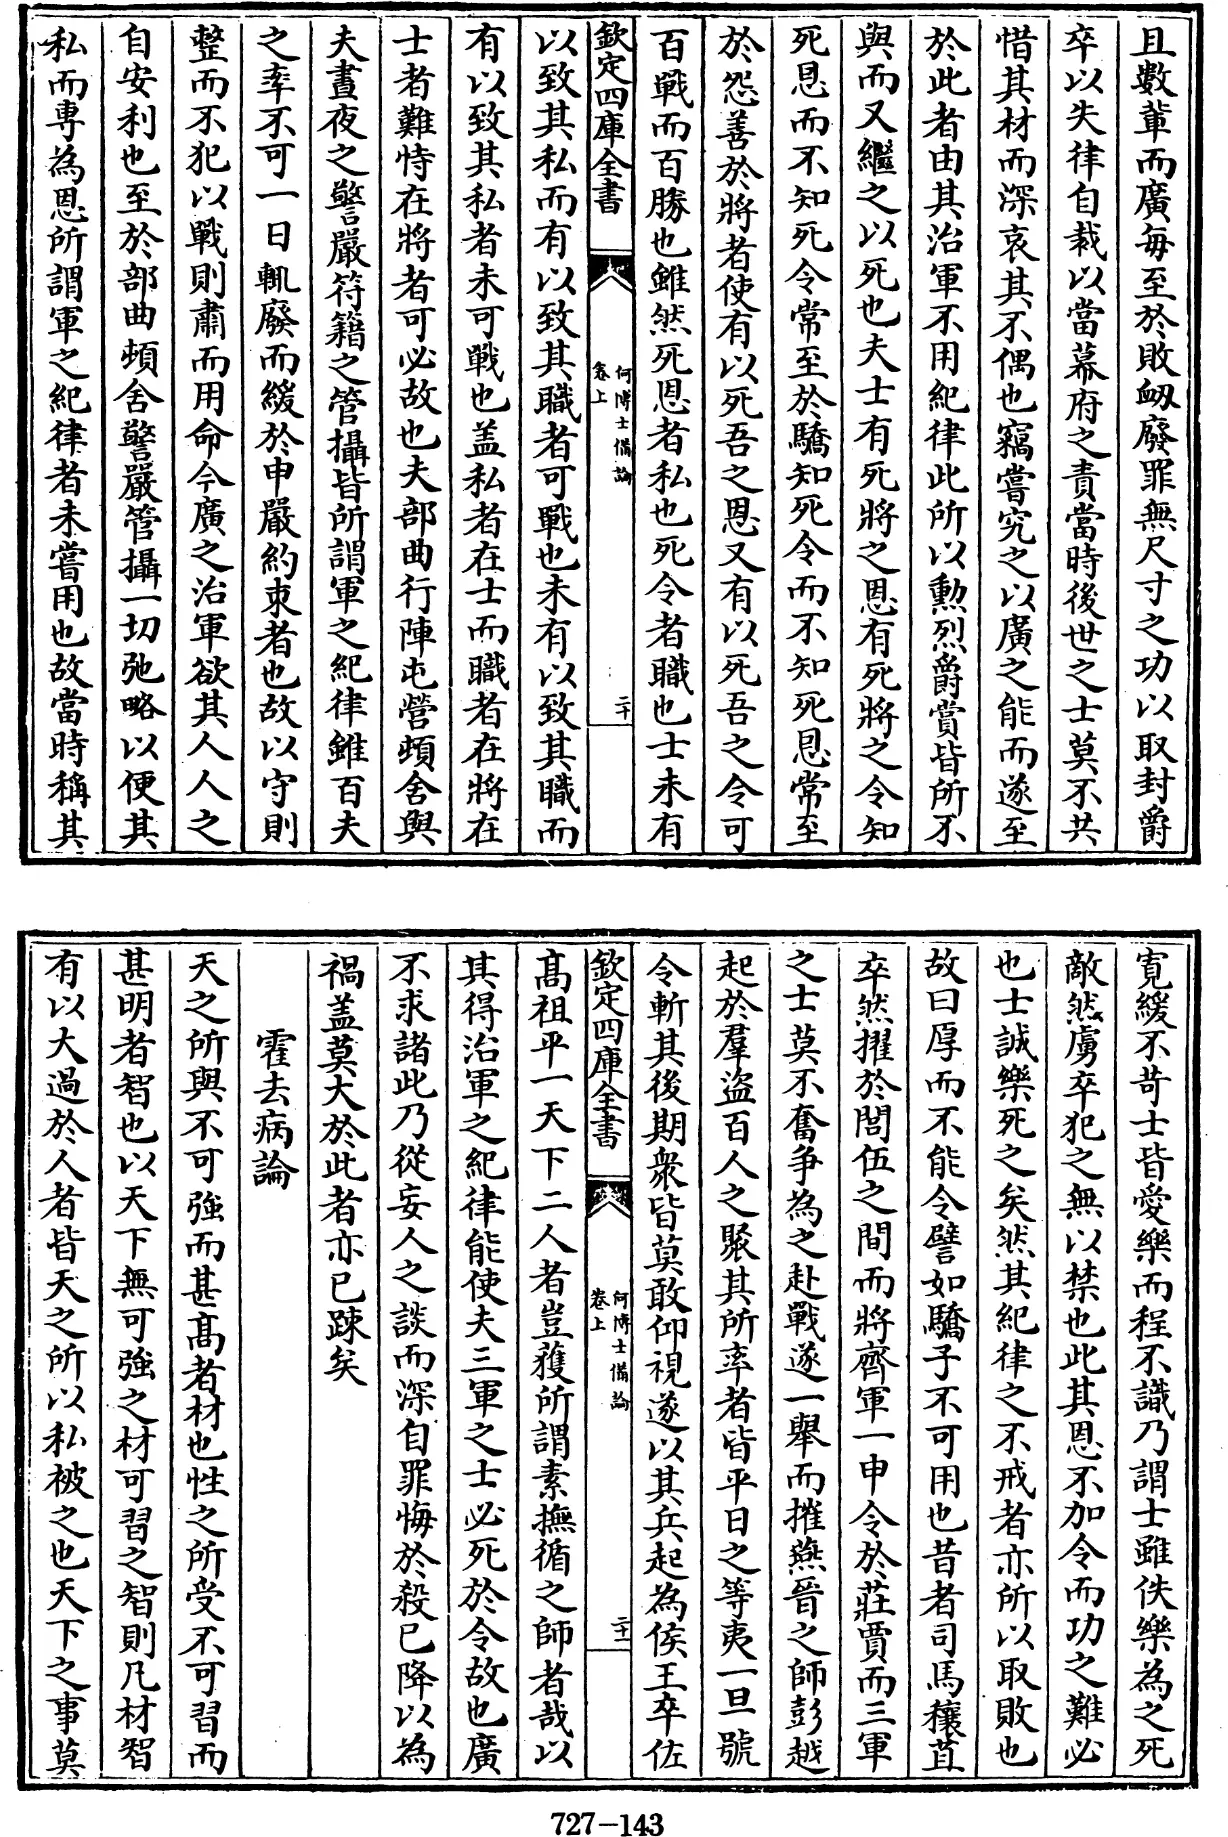 且數輩而廣毎至於敗衂廢罪無尺寸之功以取封爵
卒以失律自裁以當幕府之責當時後世之士莫不共
惜其材而深哀其不偶也竊嘗究之以廣之能而遂至
於此者由其治軍不用紀律此所以勲烈爵賞皆所不
與而又繼之以死也夫士有死將之恩有死將之令知
死恩而不知死令常至於驕知死令而不知死恩常至
於怨善於將者使有以死吾之恩又有以死吾之令可
百戰而百勝也雖然死恩者私也死令者職也士未有
欽定四庫全書
何博士備論
卷上
二十
以致其私而有以致其職者可戰也未有以致其職而
有以致其私者未可戰也盖私者在士而職者在將在
士者難恃在將者可必故也夫部曲行陣屯營頓舍與
夫晝夜之警嚴符籍之管攝皆所謂軍之紀律雖百夫
之率不可一日輒廢而緩於申嚴約束者也故以守則
整而不犯以戰則肅而用命今廣之治軍欲其人人之
自安利也至於部曲頓舍警嚴管攝一切弛略以便其
私而專為恩所謂軍之紀律者未嘗用也故當時稱其
寛緩不苛士皆愛樂而程不識乃謂士雖佚樂為之死
敵然虜卒犯之無以禁也此其恩不加令而功之難必
也士誠樂死之矣然其紀律之不戒者亦所以取敗也
故曰厚而不能令譬如驕子不可用也昔者司馬穰苴
卒然擢於閭伍之間而將齊軍一申令於莊賈而三軍
之士莫不奮爭為之赴戰遂一舉而摧燕晉之師彭越
起於羣盜百人之聚其所率者皆平日之等夷一旦號
令斬其後期衆皆莫敢仰視遂以其兵起為侯王卒佐
欽定四庫全書
何博士備論
卷上
二十一
髙祖平一天下二人者豈獲所謂素撫循之師者哉以
其得治軍之紀律能使夫三軍之士必死於令故也廣
不求諸此乃從妄人之談而深自罪悔於殺已降以為
禍盖莫大於此者亦已踈矣
霍去病論
天之所與不可強而甚髙者材也性之所受不可習而
甚明者智也以天下無可強之材可習之智則凡材智
有以大過於人者皆天之所以私被之也天下之事莫
727-143